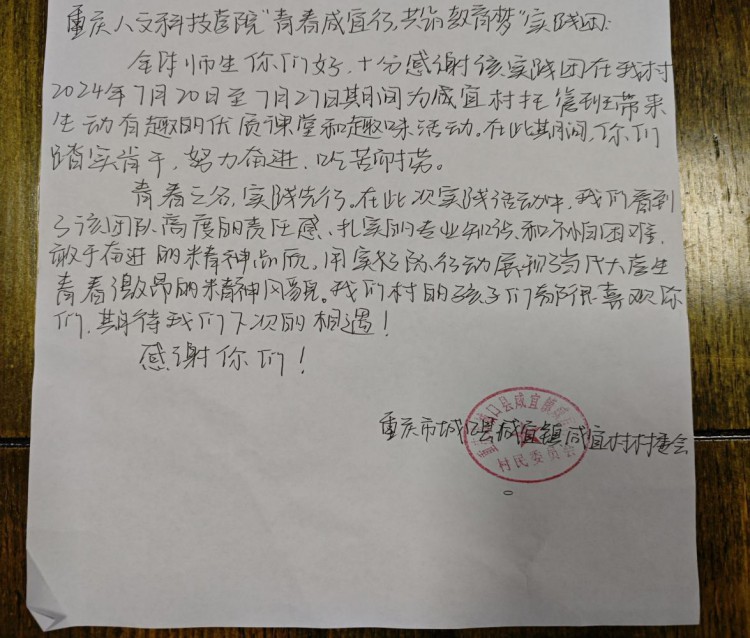 重庆人文科技学院"青春咸宜行,共筑教育梦"实践团:
全体师生你们好,十分感谢该实践团在我村
2024年7月20日至7月27日期间为咸宜村托管班带来
生动有趣的优质课堂和趣味活动。在此期间,你们
踏实肯干,努力奋进,吃苦耐劳。
青春之名,实践先行。在此次实践活动中,我们看到
了该团队高度的责任感、扎实的专业知识和不怕困难,
敢于奋进的精神品质,用实际行动展现了当代大学生
青春激昂的精神风貌。我们村的孩子们都很喜欢你
们,期待我们下次的相遇!
感谢你们!
重庆市城口县咸宜镇咸宜村村委会
口县咸宜镇咸
村民委员会